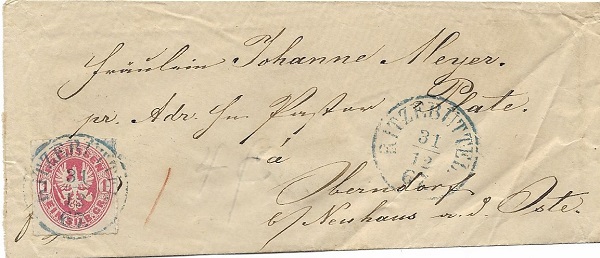 Fräulein Johanne Meyer.
pr. Adr. Hn Pastor Plate.
à
Oberndorf
b/ Neuhaus a. d. Oste.
RITZEBÜTTEL.
31
12
PREUSSEN
1 1
31
12